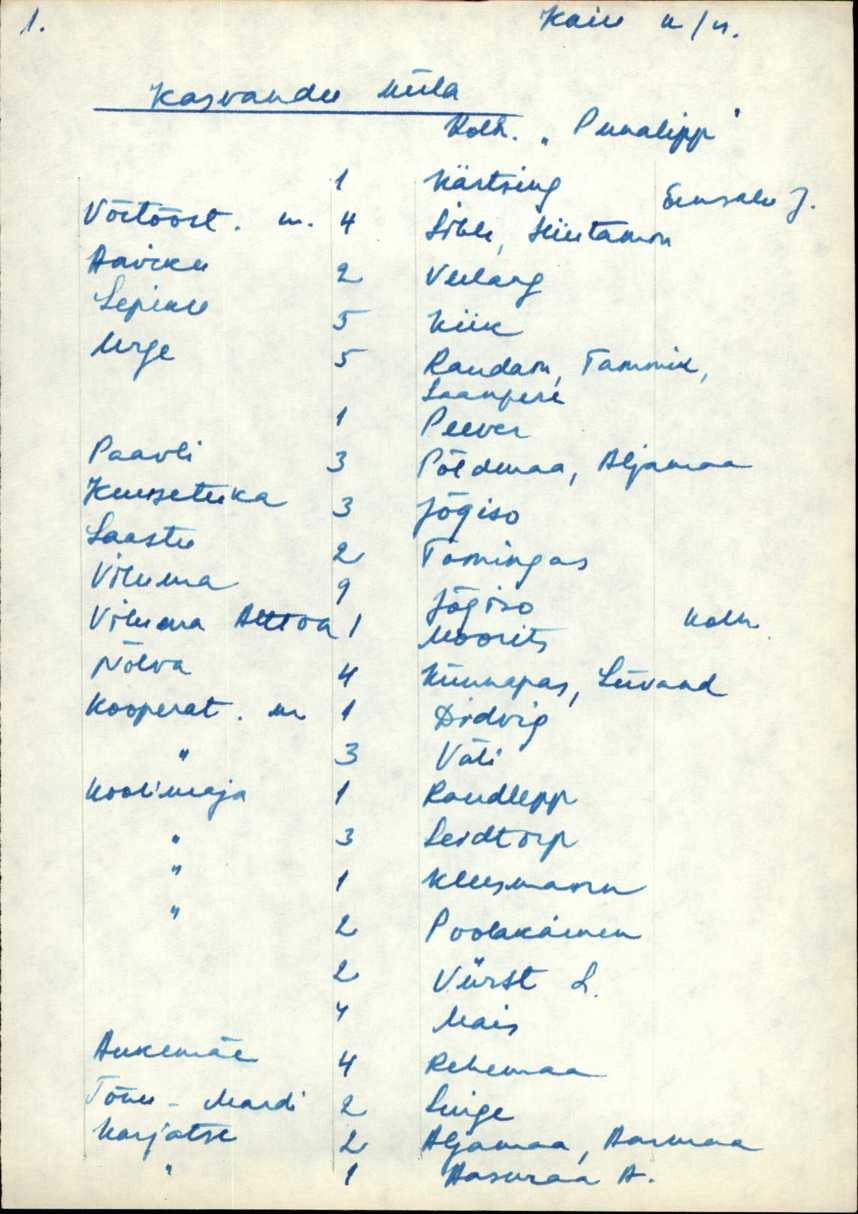 1. Kaiu k/n.
Kasvandu küla
Kolh. "Punalipp"
1 Kärtsing
Võitööst. m. 4 Sibk, Hiietamm
Aaviku 2 Veelaeg
Lepiku 5 Kiik
Urge 5 Raudam, Tammik,
Saanpere
1 Peever
Paavli 3 Põldmaa, Aljamaa
3 Jõgiso
Saastu 2 Tomingas
Viluma 9 Jõgiso
Viluma 1 Moorits Kolh.
Nõlva 4 Künnapas, Liivand
Kooperat. m 1 Didvig
" 3 Väli
Koolimaja 1 Raudlepp
" 3 Leidtorp
" 1 Kleesmann
" 2 Poolakainen
2 Vürst L.
4 Mais
Aukemäe 4 Rehemaa
Tõnu-Mardi 2 Luige
Karjatse 2 Aljamaa, Aasmaa
" 1 Aasmaa A.